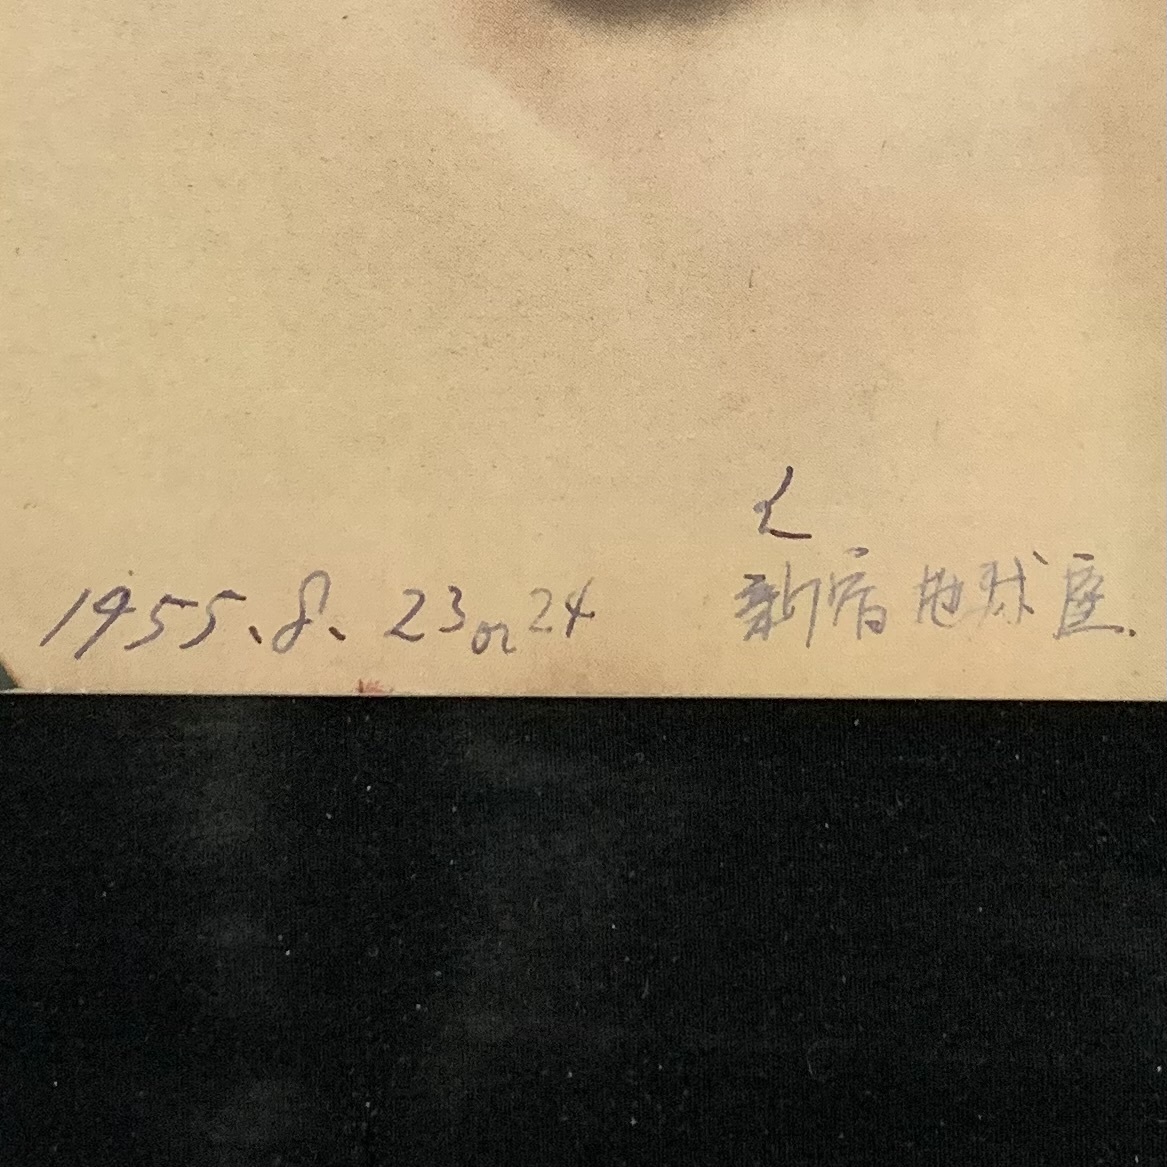 L
1955.8. 23 or 24 新宿地球座.